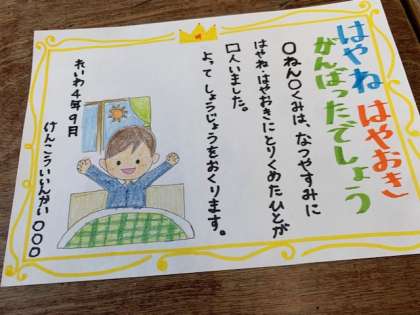 はやね はやおき
がんばったでしょう
〇ねん〇くみは、なつやすみに
はやね・はやおきにとりくめたひとが
□人いました。
よって しょうじょうをおくります。
れいわ4年9月
けんこういいんかい 〇〇〇